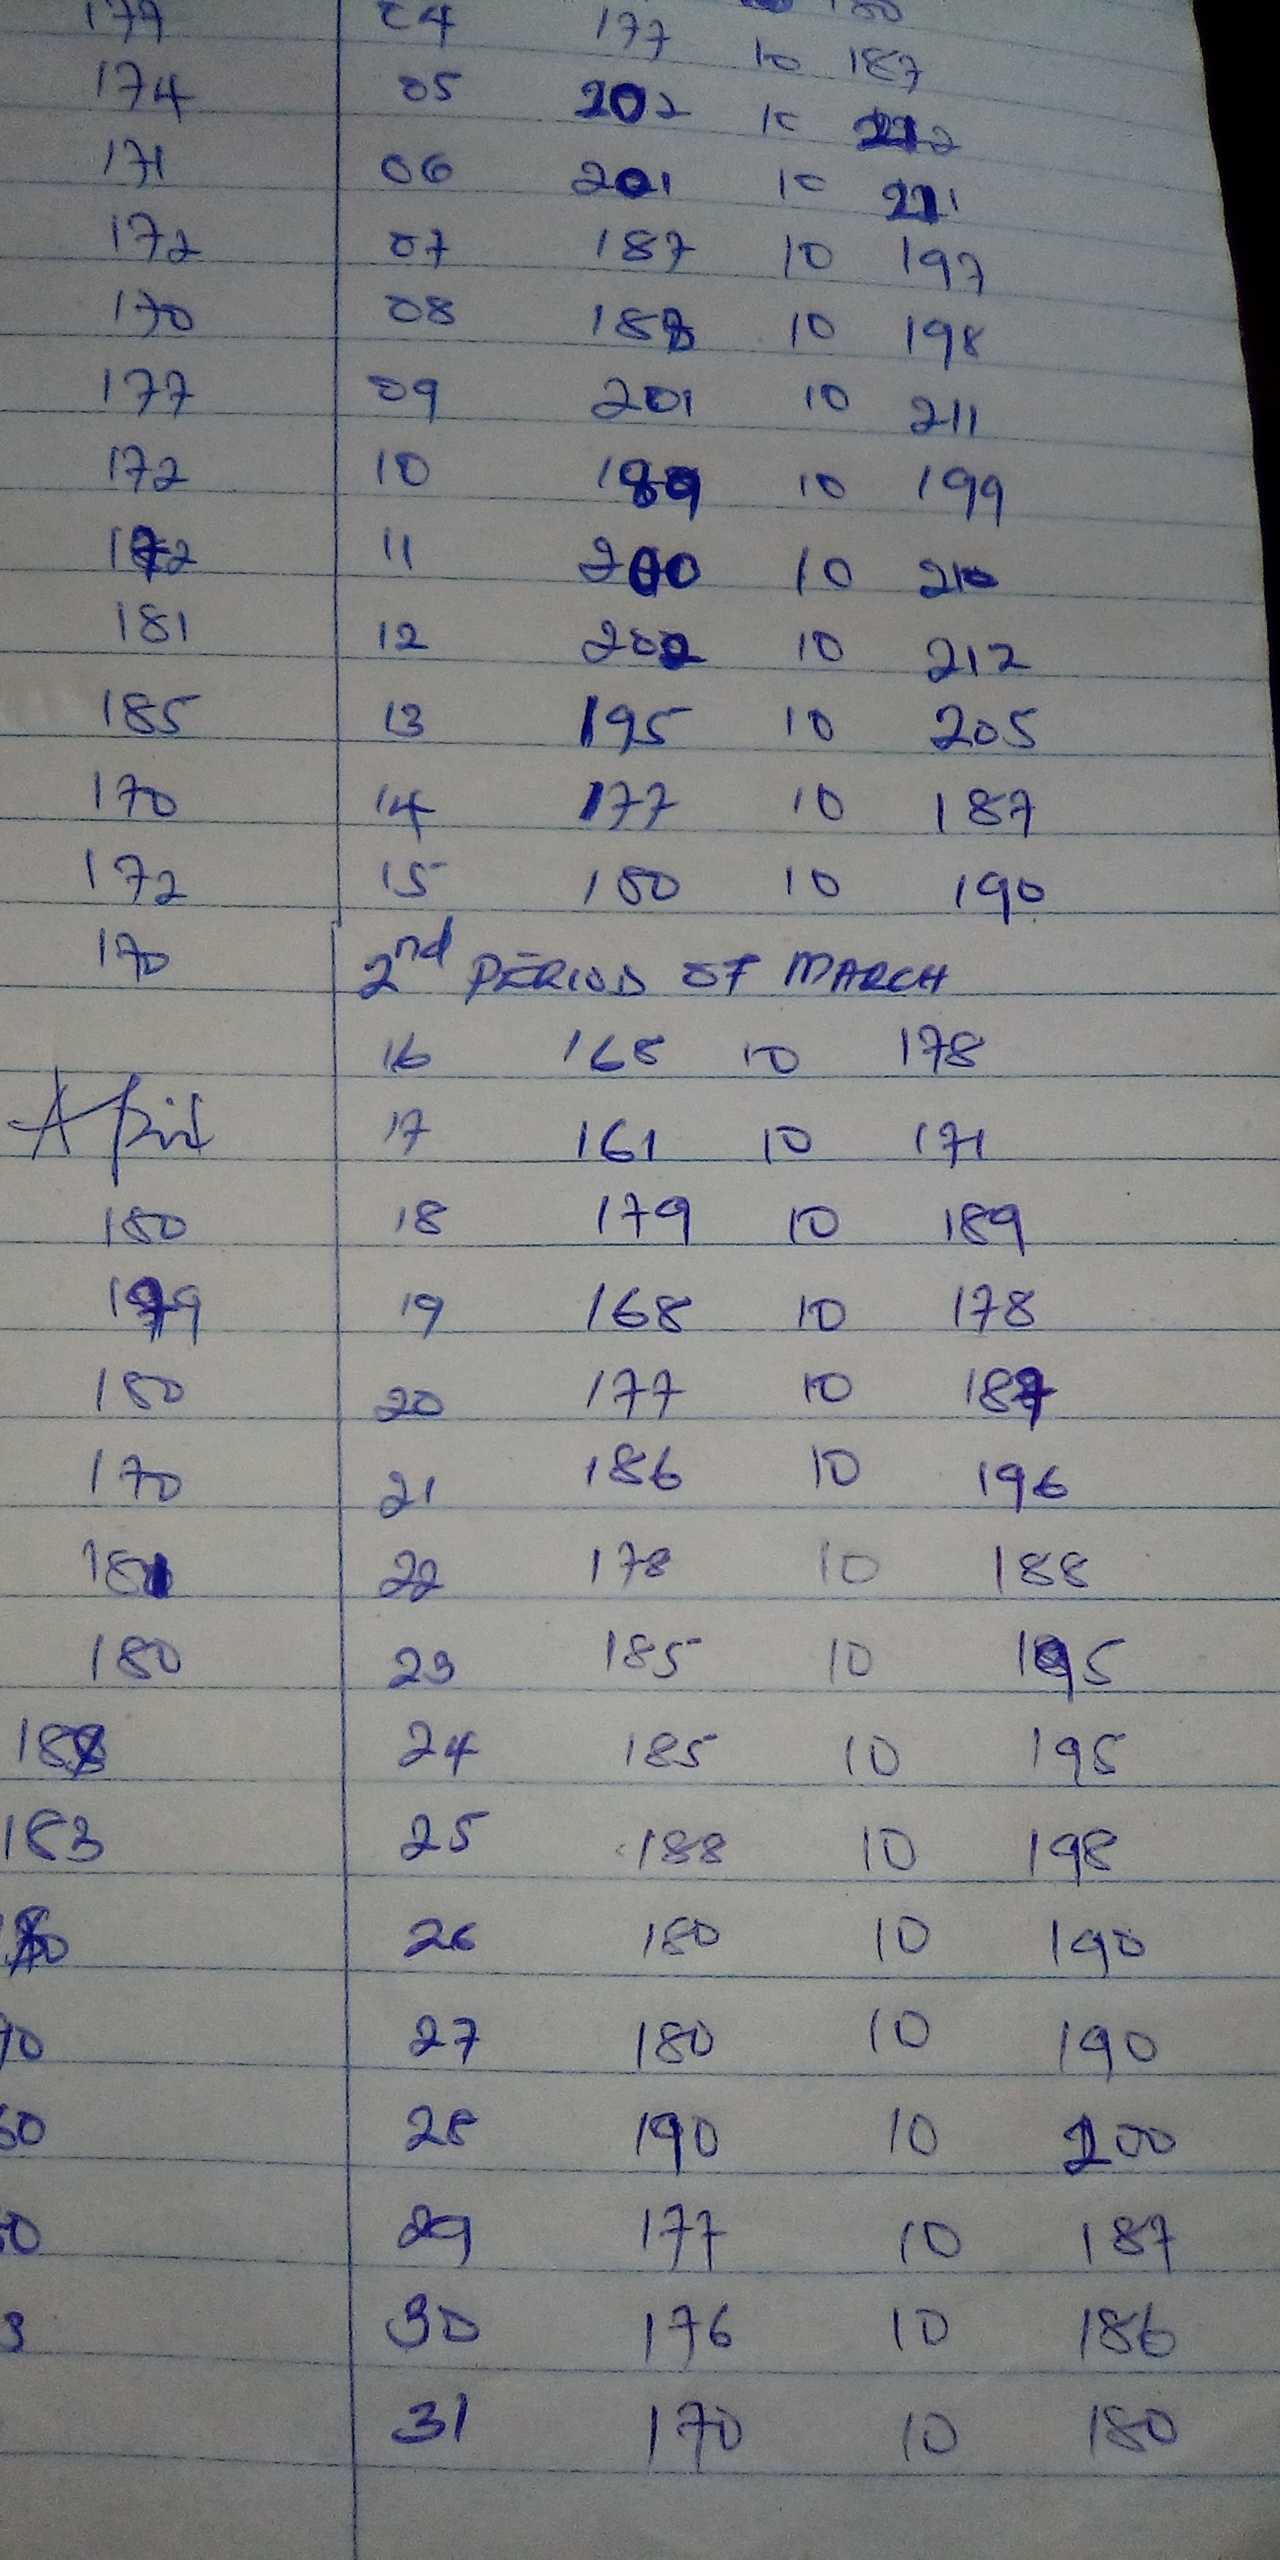 177 04 177 10 187
174 05 202 10 212
171 06 201 10 211
172 07 187 10 197
170 08 188 10 198
177 09 201 10 211
172 10 189 10 199
172 11 200 10 210
181 12 202 10 212
185 13 195 10 205
170 14 177 10 187
172 15 180 10 190
170 2nd PERIOD OF MARCH
16 168 10 178
April 17 161 10 171
180 18 179 10 189
179 19 168 10 178
180 20 177 10 187
170 21 186 10 196
181 22 178 10 188
180 23 185 10 195
188 24 185 10 195
183 25 188 10 198
26 180 10 190
27 180 10 190
28 190 10 200
29 177 10 187
3 30 176 10 186
31 170 10 180